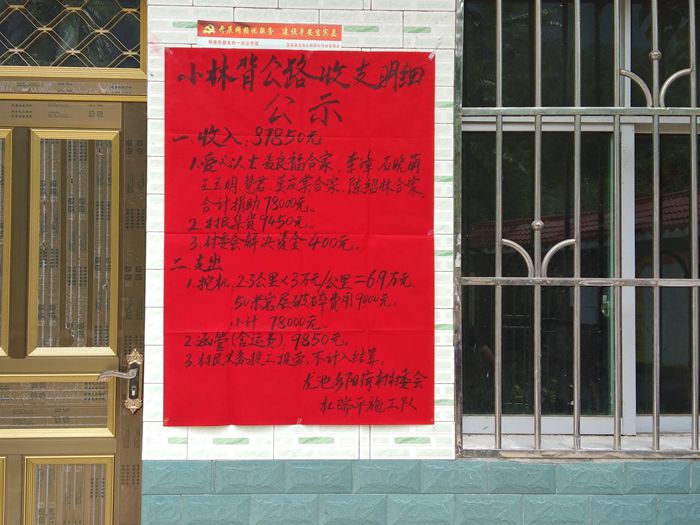 开展网格化服务 建设平安宜宾县
小林背公路收支明细
公示
一.收入:87850元
1.爱心人士袁良福合家、李峰 石晓萌
王玉明 慧君、莫庆棠合家、陈绍林合家
合计捐助78000元。
2.村民集资9450元。
3.村委会解决资金400元。
二.支出
1.挖机,2.3公里×3万元/公里=6.9万元,
50米岩层破碎费用9000元。
小计 78000元。
2.涵管(含运费),9850元。
3.村民义务投工投劳,不计入结算。
龙池乡阳荷村村委会
杜瑞平施工队